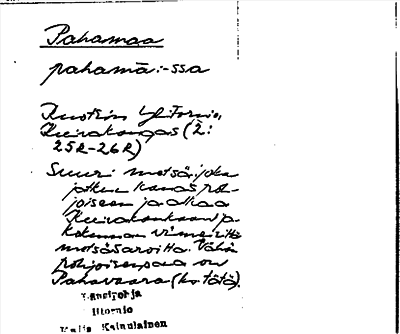 Pahamaa
pahamā: -ssa
Ruotsin Ylitornio,
Kuivakangas (2:
25R-26R)
Suuri metsä, joka
jatkuu kauas poh-
joiseen ja alkaa
Kuivakankaan p.
viimeisiltä
metsäsaroilta. Vähä
pohjoisempaa on
Pahavaara (ks. tätä).
Länsipohja
Ylitornio
Kainulainen